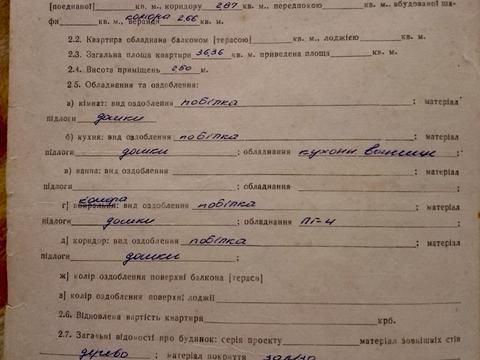 [поєднаної] кв. м., коридору 2,87 кв. м., передпокою кв. м., вбудованої ша-
фи кв. м., комора 2,66 кв. м.
2.2. Квартира обладнана балконом [терасою] кв. м., лоджією кв. м.
2.3. Загальна площа квартири 36,36 кв. м. приведена площа кв. м.
2.4. Висота приміщень 2,60 м.
2.5. Обладнання та оздоблення:
а) кімнат: вид оздоблення побілка ; матеріал
підлоги дошки
б) кухня: вид оздоблення побілка ; матеріал
підлоги дошки ; обладнання кухонн ;
в) ванна: вид оздоблення ; матеріал
підлоги ; обладнання
г) комора: вид оздоблення побілка ; матеріал
підлоги дошки ; обладнання ПГ-4
д) коридор: вид оздоблення побілка ; матеріал
підлоги дошки ;
ж) колір оздоблення поверхні балкона [тераси]
з) колір оздоблення поверхні лоджії
2.6. Відновлена вартість квартири крб.
2.7. Загальні відомості про будинок: серія проекту матеріал зовнішніх стін
дерево ; матеріал покриття